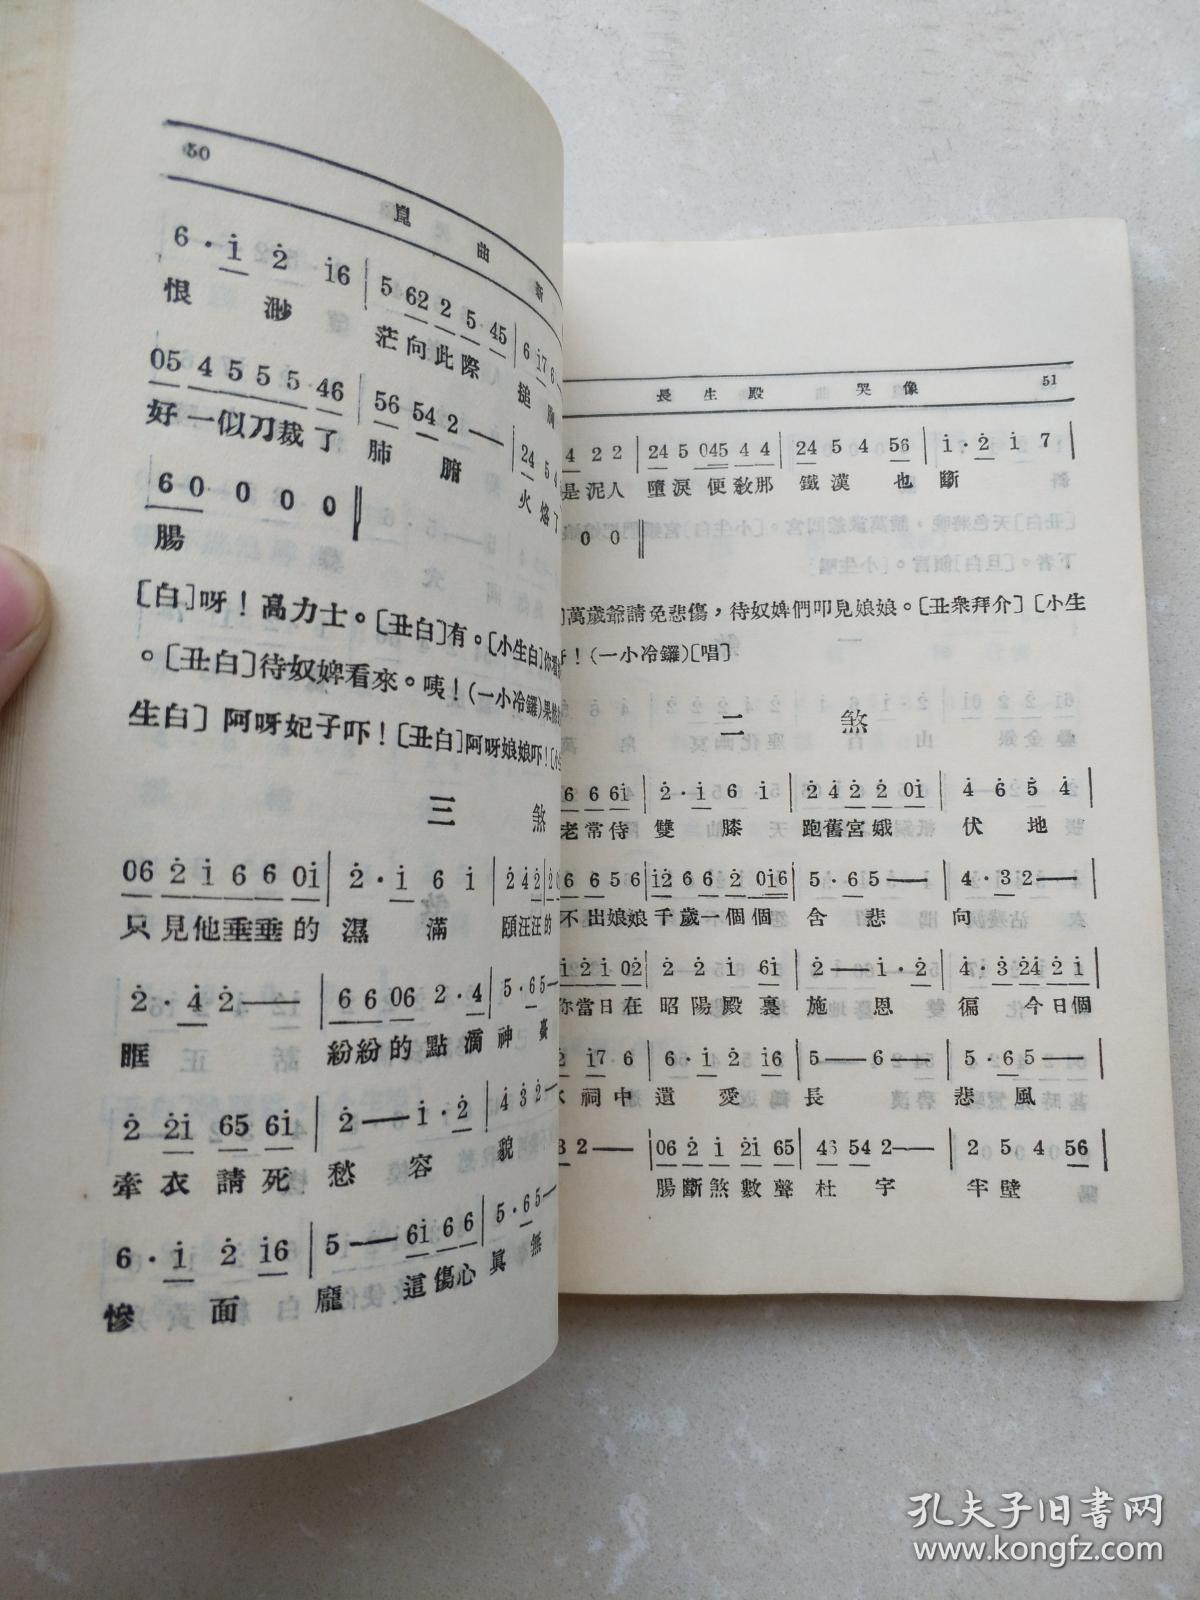 50
崑曲新
6·i 2 i6 | 5 62 2 5·45 | 6 i7 6
恨 渺 茫向此際 搥胸
05 4 5 5 5·46 | 56 54 2 — | 24 5 4
好一似刀裁了肺腑 火烙了
6 0 0 0 0 ‖
腸
[白]呀！高力士。[丑白]有。[小生白]你看
。[丑白]待奴婢看來。咦！(一小冷鑼)果然
生白]阿呀妃子吓！[丑白]阿呀娘娘吓！[
三 煞
06 2 i 6 6 0i | 2·i 6 i | 2 4 2
只見他垂垂的 濕 滿 頤汪汪的
2·4 2 —— | 6 6 06 2·4 | 5·6 5 —
眶 紛紛的點滴神臺
2 2i 65 6i | 2 —— i·2 | 4 3 2 —
牽衣請死 愁容貌
6·i 2 i6 | 5 —— 6i 6 6 | 5·6 5 —
慘 面 龐 這傷心真無
長生殿 哭像 51
4 2 2 | 24 5 045 4 4 | 24 5 4 56 | i·2 i 7 |
是泥人 墮淚便教那 鐵漢也 斷
0 0 ‖
萬歲爺請免悲傷，待奴婢們叩見娘娘。[丑衆拜介][小生
！(一小冷鑼)[唱]
二 煞
6 6 6i | 2·i 6 i | 2 4 2 2 0i | 4 6 5 4 |
老常侍 雙 膝 跑舊宮娥 伏 地
6 6 5 6 | i2 6 6 2 0i6 | 5·6 5 —— | 4·3 2 —— |
不出娘娘千歲一個個 含悲 向
i 2 i 02 | 2 2 i 6i | 2 —— i·2 | 4·3 24 2 i |
你當日在 昭陽殿裏 施恩 徧 今日個
2 i7 6 | 6·i 2 i6 | 5 —— 6 —— | 5·6 5 —— |
祠中 遺 愛 長 悲風
3 2 —— | 06 2 i 2i 65 | 46 54 2 —— | 2 5 4 56 |
腸斷煞數聲 杜宇 半壁
孔夫子旧书网
www.kongfz.com